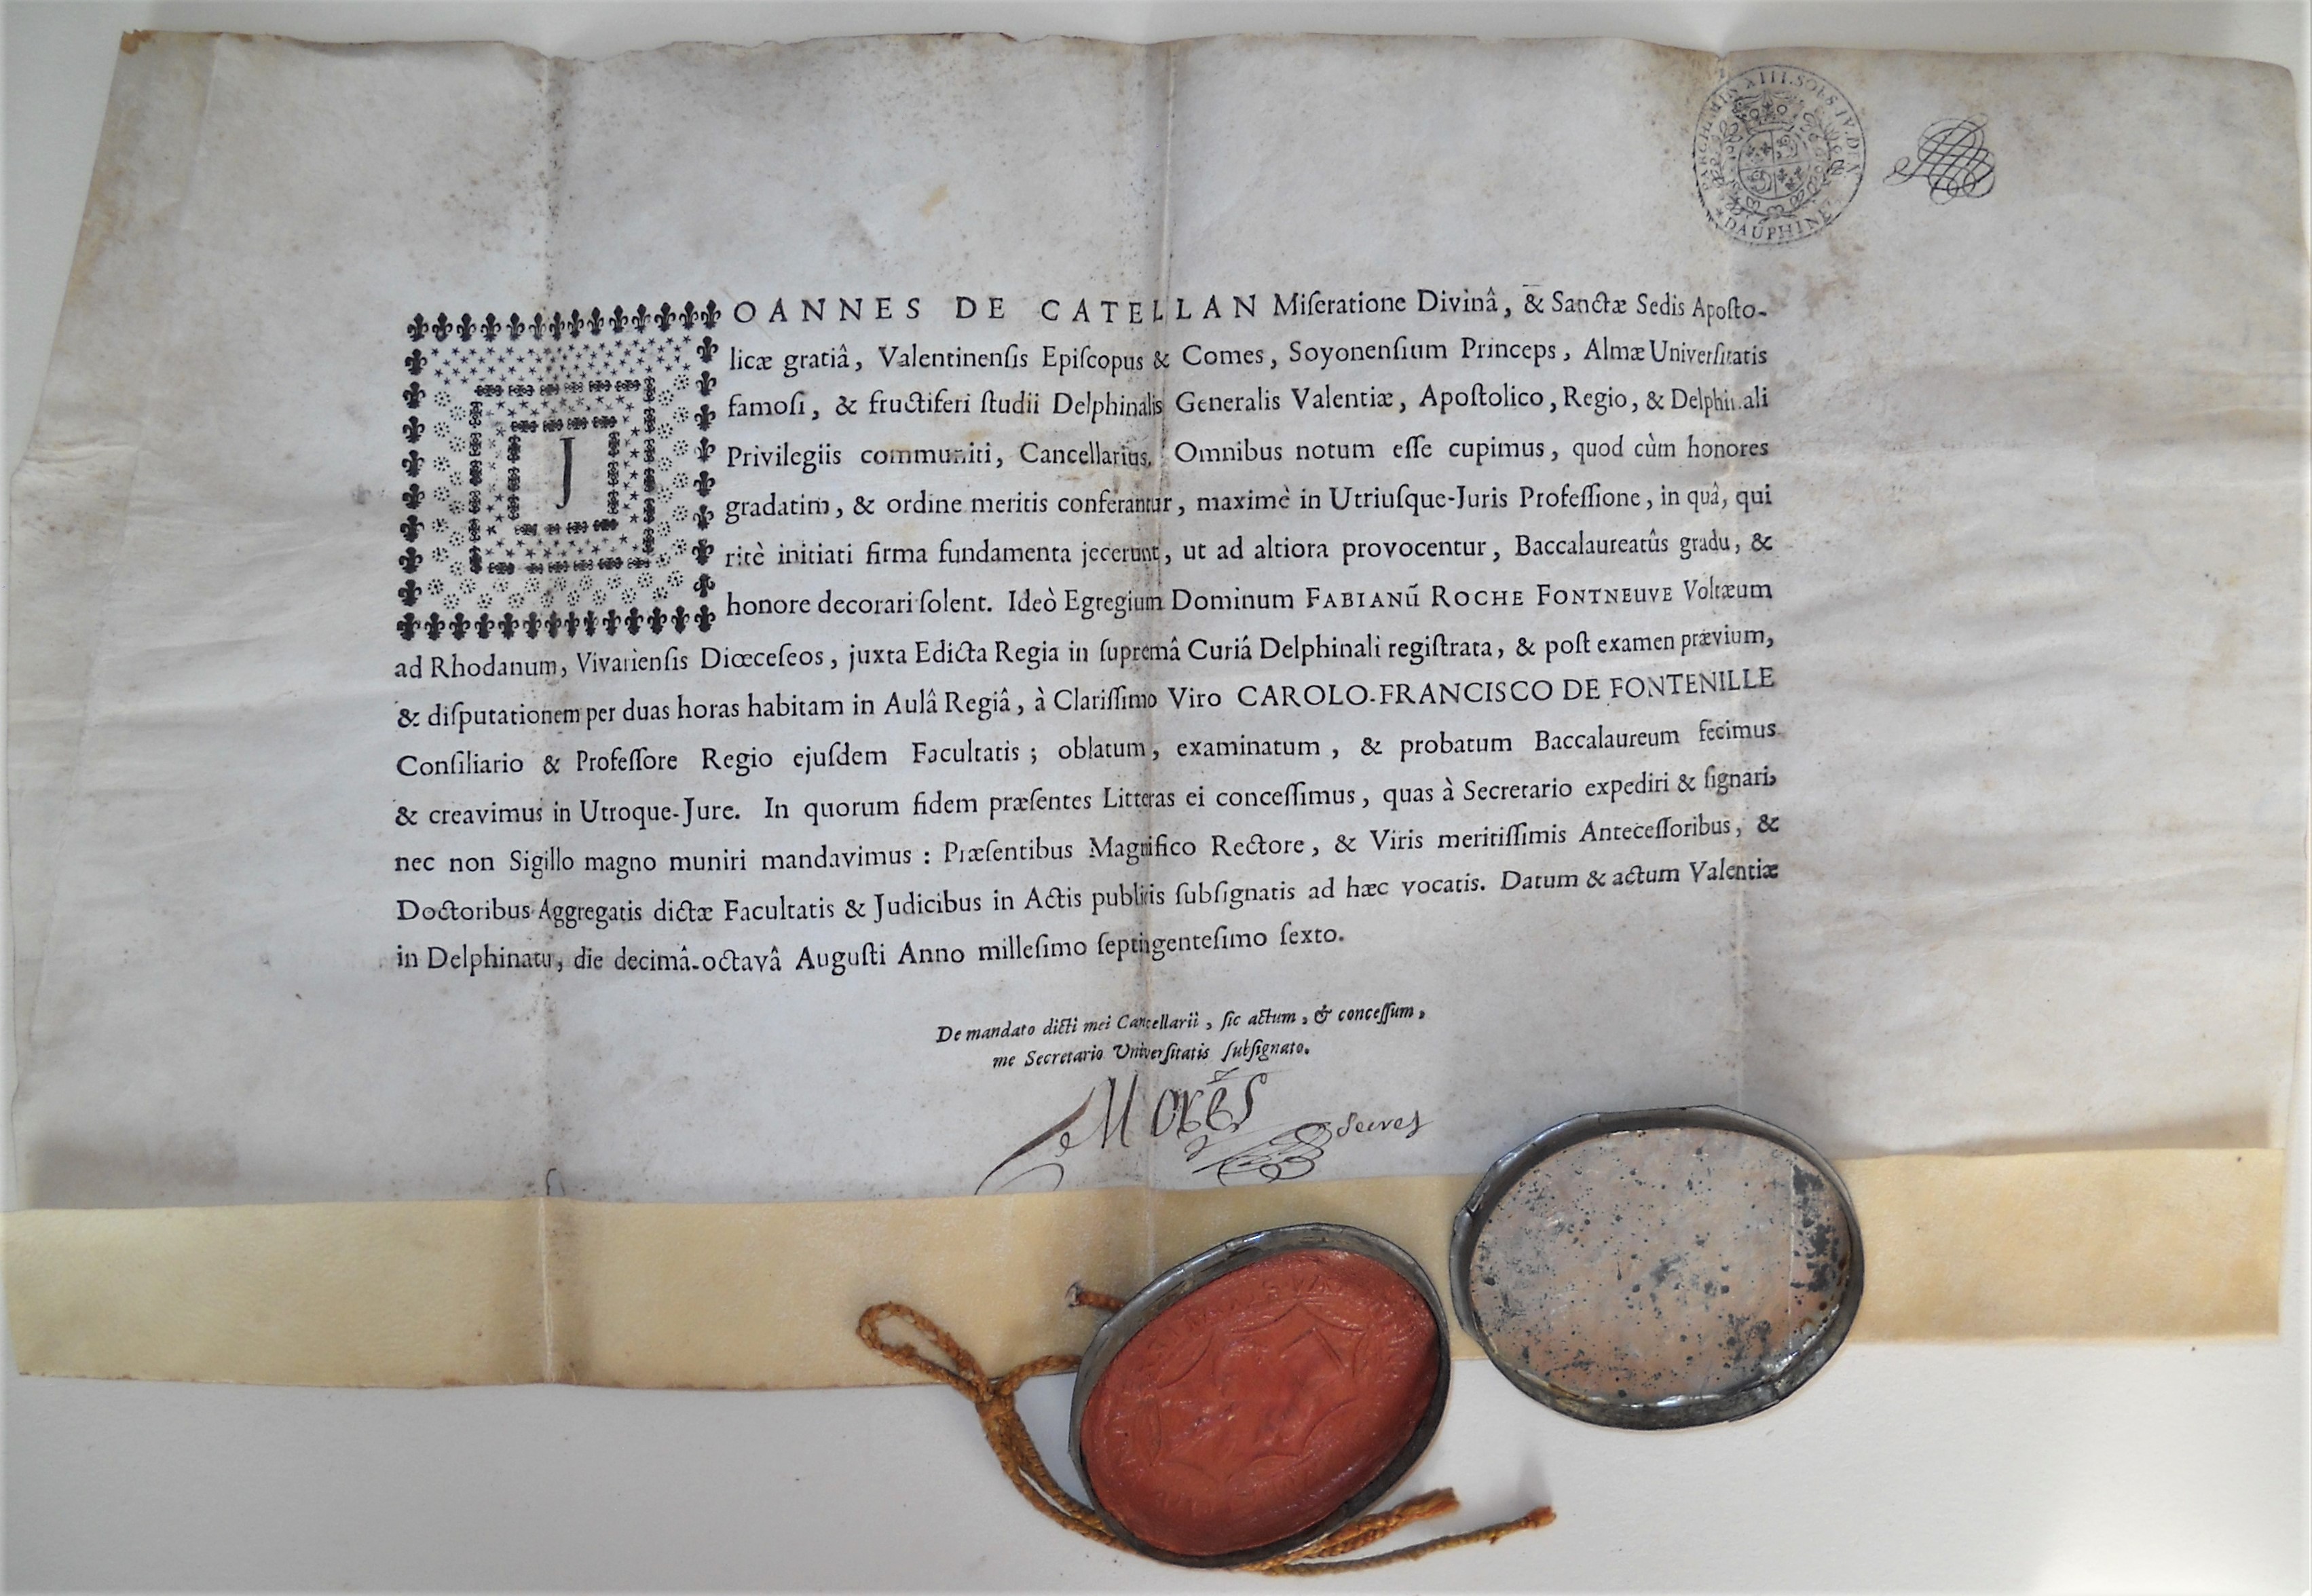 PARCHEMIN XIII. SOLS IV. DEN
DAUPHINE
JOANNES DE CATELLAN Miſeratione Divinâ, & Sanctæ Sedis Apoſto-
licæ gratiâ, Valentinenſis Epiſcopus & Comes, Soyonenſium Princeps, Almæ Univerſitatis
famoſi, & fructiferi ſtudii Delphinalis Generalis Valentiæ, Apoſtolico, Regio, & Delphinali
Privilegiis communiti, Cancellarius. Omnibus notum eſſe cupimus, quod cùm honores
gradatim, & ordine meritis conferantur, maximè in Utriuſque-Juris Profeſſione, in quâ, qui
ritè initiati firma fundamenta jecerunt, ut ad altiora provocentur, Baccalaureatûs gradu, &
honore decorari ſolent. Ideò Egregium Dominum FABIANũ ROCHE FONTNEUVE Voltæum
ad Rhodanum, Vivarienſis Diœceſeos, juxta Edicta Regia in ſupremâ Curiâ Delphinali regiſtrata, & poſt examen prævium,
& diſputationem per duas horas habitam in Aulâ Regiâ, à Clariſſimo Viro CAROLO-FRANCISCO DE FONTENILLE
Conſiliario & Profeſſore Regio ejuſdem Facultatis ; oblatum, examinatum, & probatum Baccalaureum fecimus
& creavimus in Utroque-Jure. In quorum fidem præſentes Litteras ei conceſſimus, quas à Secretario expediri & ſignari,
nec non Sigillo magno muniri mandavimus : Præſentibus Magnifico Rectore, & Viris meritiſſimis Anteceſſoribus, &
Doctoribus Aggregatis dictæ Facultatis & Judicibus in Actis publicis ſubſignatis ad hæc vocatis. Datum & actum Valentiæ
in Delphinatu, die decimâ-octavâ Auguſti Anno milleſimo ſeptingenteſimo ſexto.
De mandato dicti mei Cancellarii, ſic actum, & conceſſum,
me Secretario Univerſitatis ſubſignato.